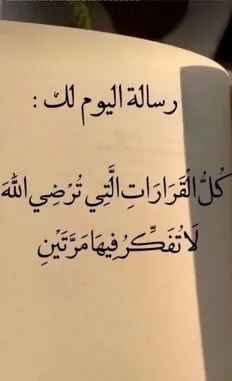 رسالة اليوم لك :
كُلُّ الْقَرَارَاتِ الَّتِي تُرْضِي اللهَ
لَا تُفَكِّرُ فِيهَا مَرَّتَيْنِ